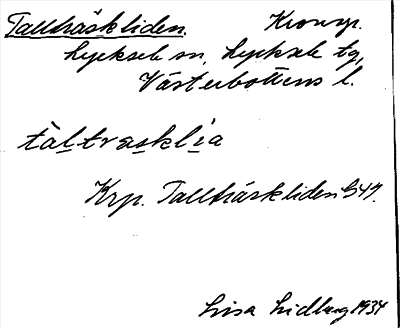 Tallträskliden. Kronup.
Lycksele sn, Lycksele tg,
Västerbottens l.
tàltrasklia
Krp. Tallträskliden G49.
Lisa Lidberg 1934